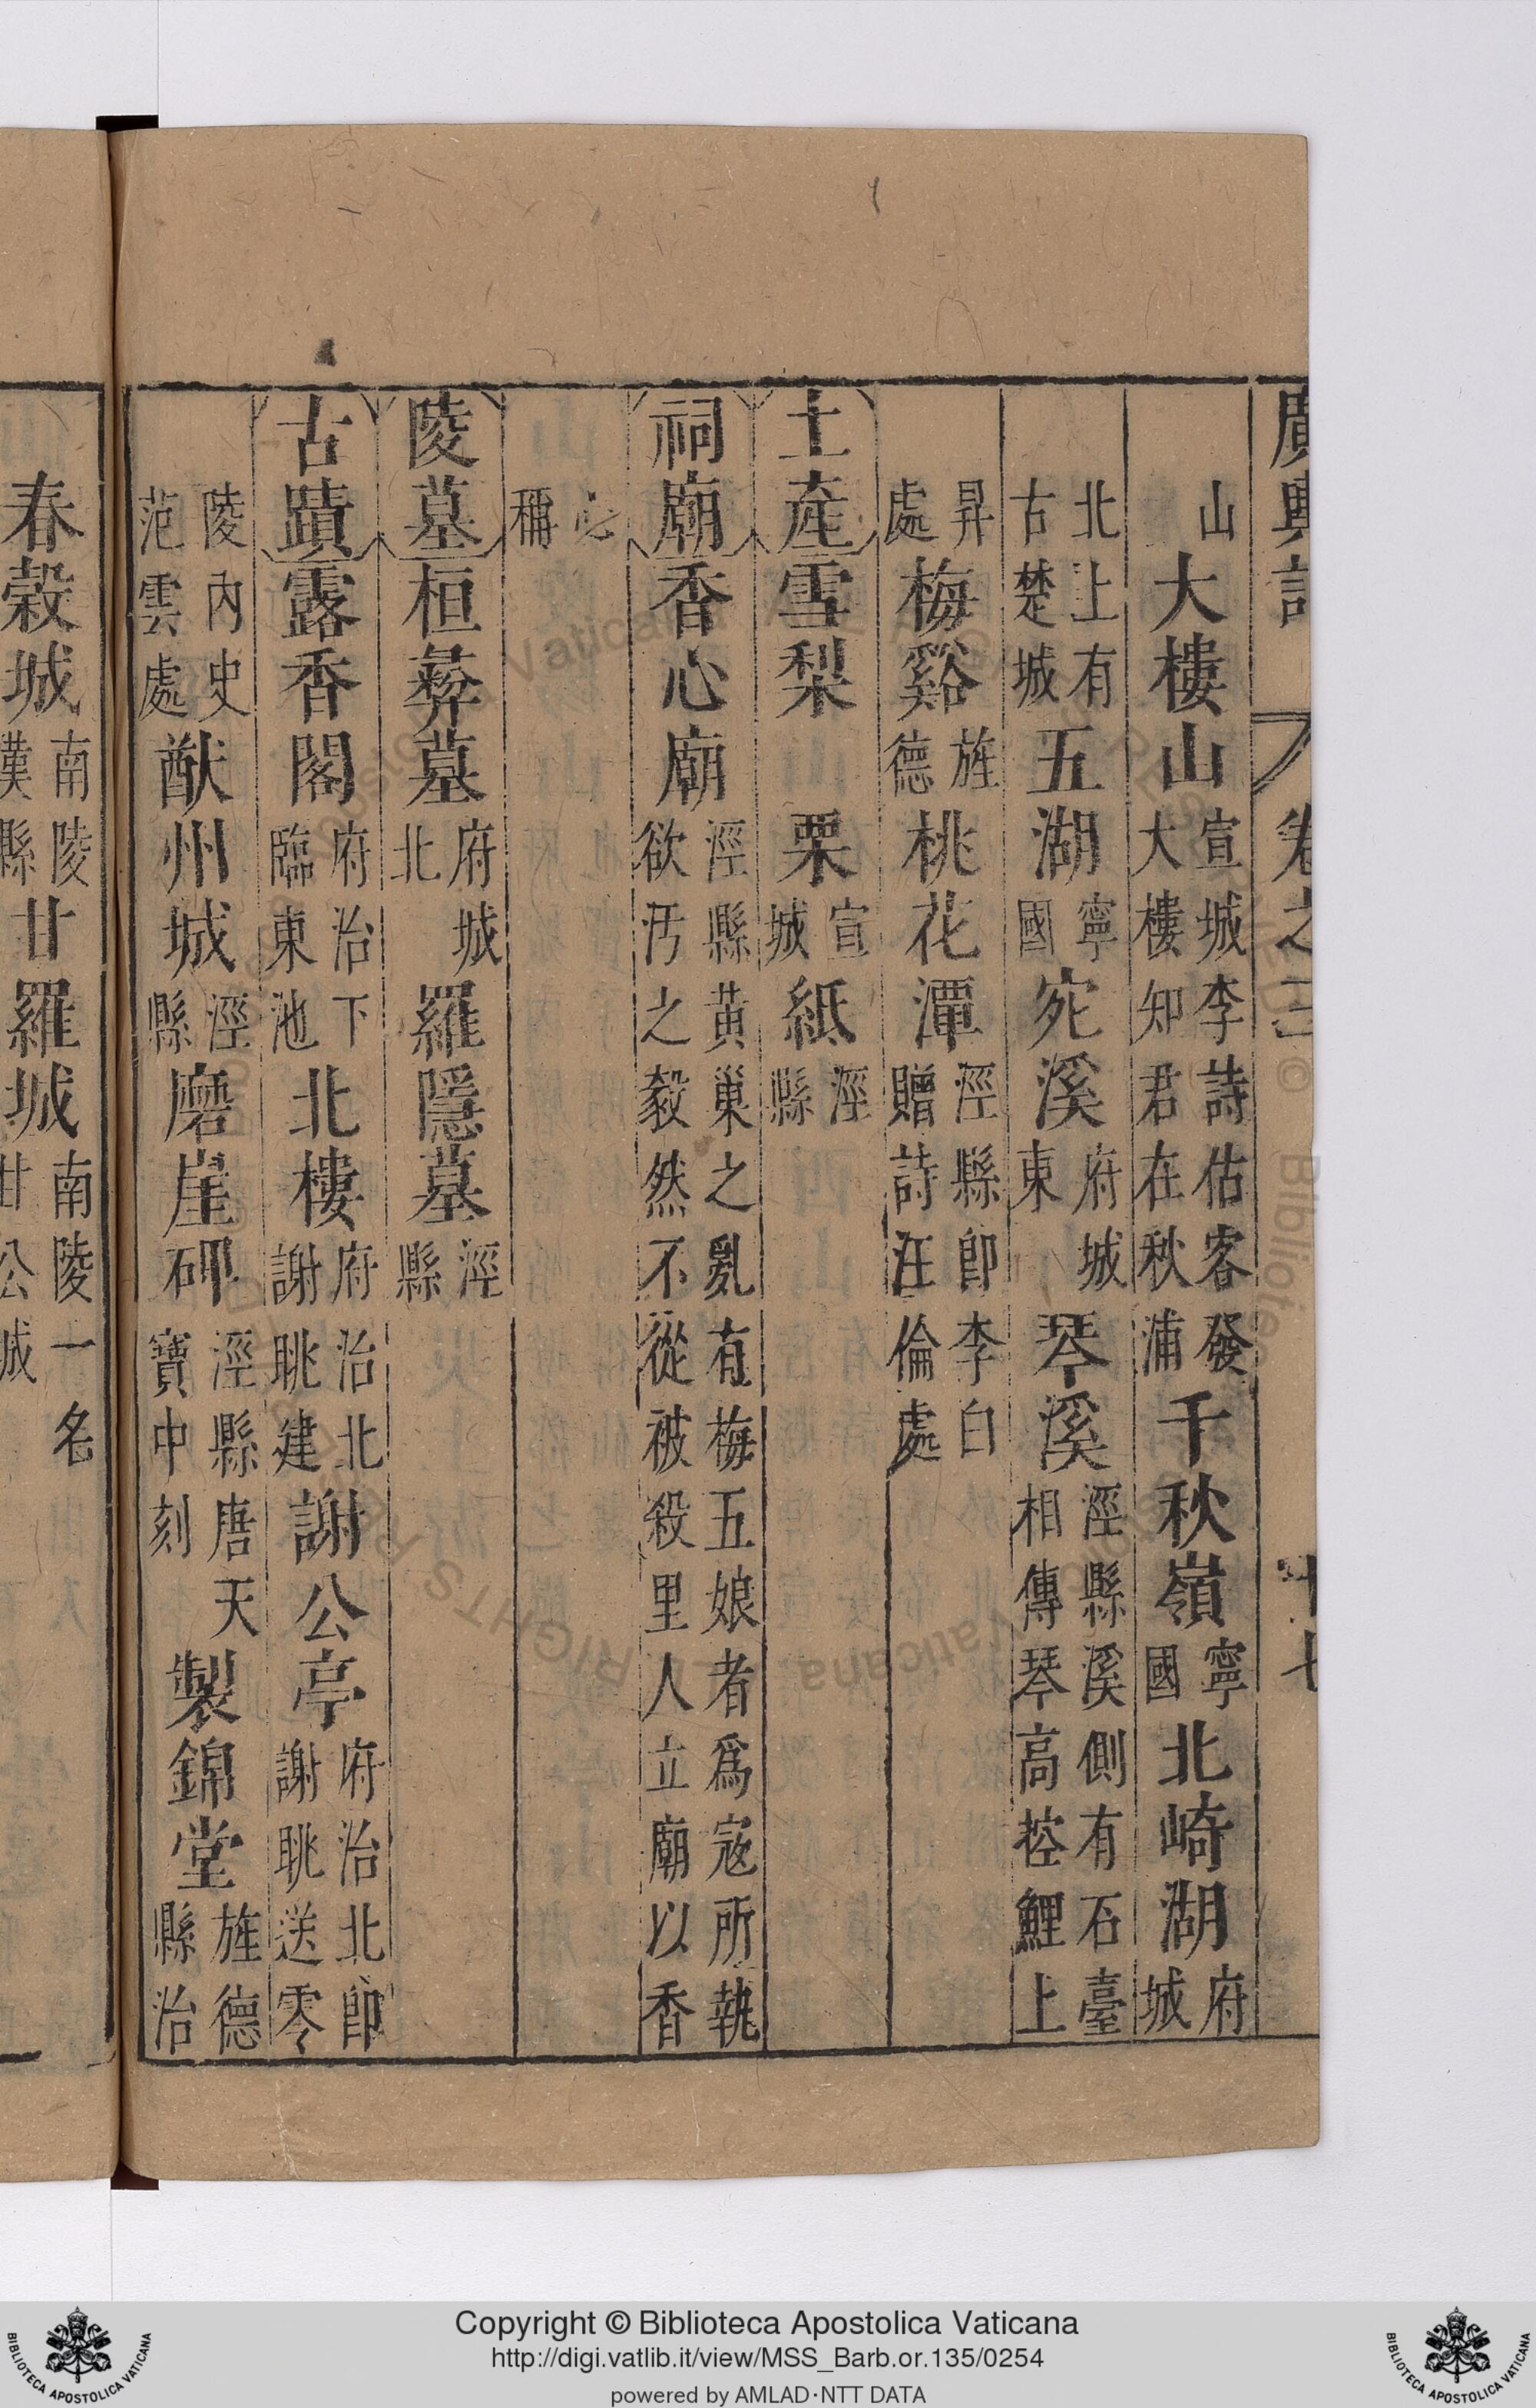 廣輿記 卷之三 十七
山大樓山宣城李詩估客發大樓知君在秋浦千秋嶺寧國北崎湖府城
北上有古楚城五湖寧國宛溪府城東琴溪涇縣溪側有石臺相傳琴高控鯉上
昇處梅谿旌德桃花潭涇縣卽李白贈詩汪倫處
土產雪梨栗宣城紙涇縣
祠廟香心廟涇縣黃巢之亂有梅五娘者爲寇所執欲汚之毅然不從被殺里人立廟以香
心稱
陵墓桓彝墓府城北羅隱墓涇縣
古蹟露香閣府治下臨東池北樓府治北謝朓建謝公亭府治北卽謝朓送零
陵內史范雲處猷州城涇縣磨崖碑涇縣唐天寶中刻製錦堂旌德縣治
春穀城南陵漢縣甘羅城南陵一名甘公城
Copyright © Biblioteca Apostolica Vaticana
http://digi.vatlib.it/view/MSS_Barb.or.135/0254
powered by AMLAD·NTT DATA
BIBLIOTECA APOSTOLICA VATICANA
BIBLIOTECA APOSTOLICA VATICANA